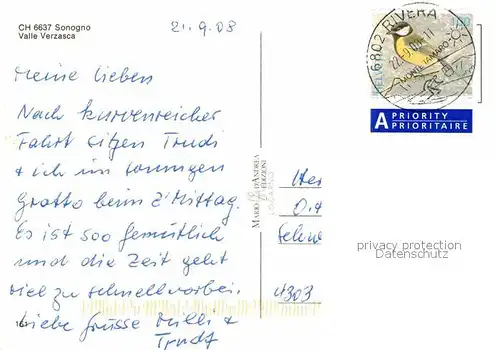 CH 6637 Sonogno
Valle Verzasca
21.9.08
Meine Lieben
Nach kurvenreicher
Fahrt sitzen Trudi
& ich im sonnigen
Grotto beim Z'Mittag.
Es ist soo gemütlich
und die Zeit geht
viel zu schnell vorbei.
Liebe Grüsse Willi &
Trudi
MARIO D'ANDREA
EDIZIONI
6802 RIVERA
MONTE TAMARO
HELVETIA
A PRIORITY
PRIORITAIRE
4303
privacy protection
Datenschutz